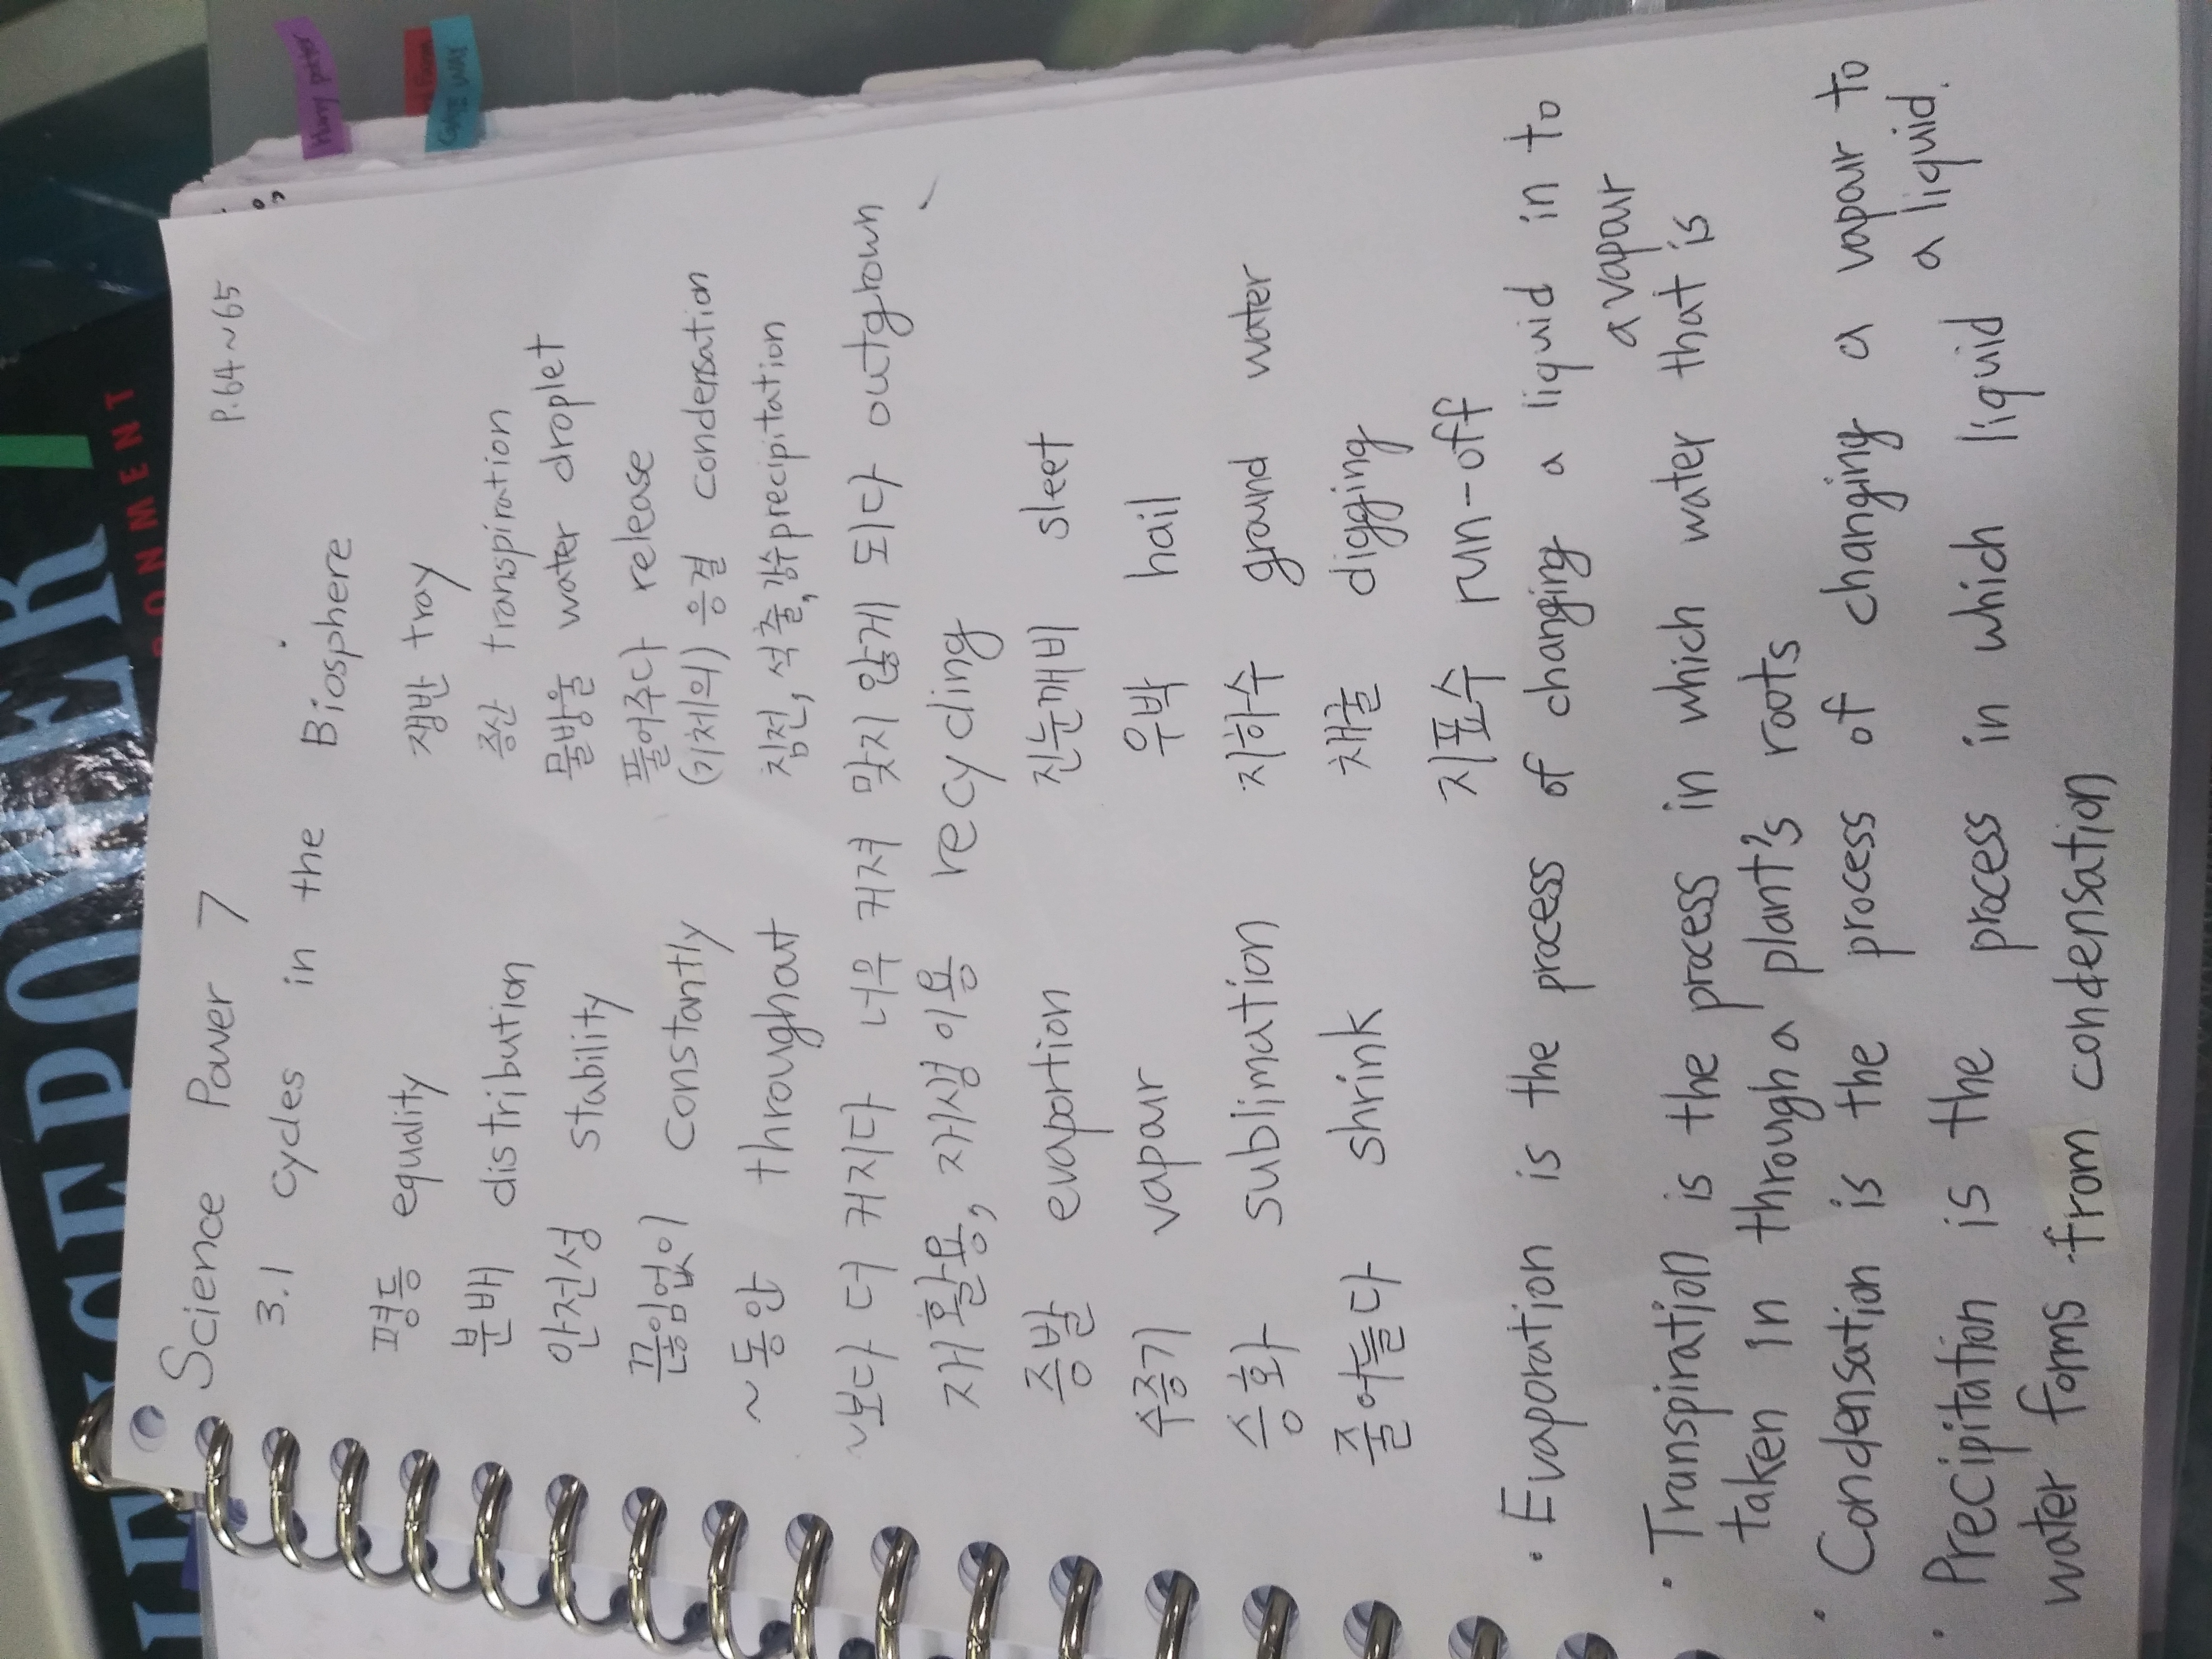 Science Power 7 P.64~65
3.1 cycles in the Biosphere
평등 equality 쟁반 tray
분배 distribution 증산 transpiration
안전성 stability 물방울 water droplet
끊임없이 constantly 풀어주다 release
~동안 throughout (기체의) 응결 condensation
침전, 석출, 강수 precipitation
~보다 더 커지다 너무 커져 맞지 않게 되다 outgrown
재활용, 재생이용 recycling
증발 evaportion 진눈깨비 sleet
수증기 vapour 우박 hail
승화 sublimation 지하수 ground water
줄어들다 shrink 채굴 digging
지표수 run-off
· Evaporation is the process of changing a liquid in to
a vapour
· Transpiration is the process in which water that is
taken in through a plant's roots
· Condensation is the process of changing a vapour to
a liquid.
· Precipitation is the process in which liquid
water forms from condensation